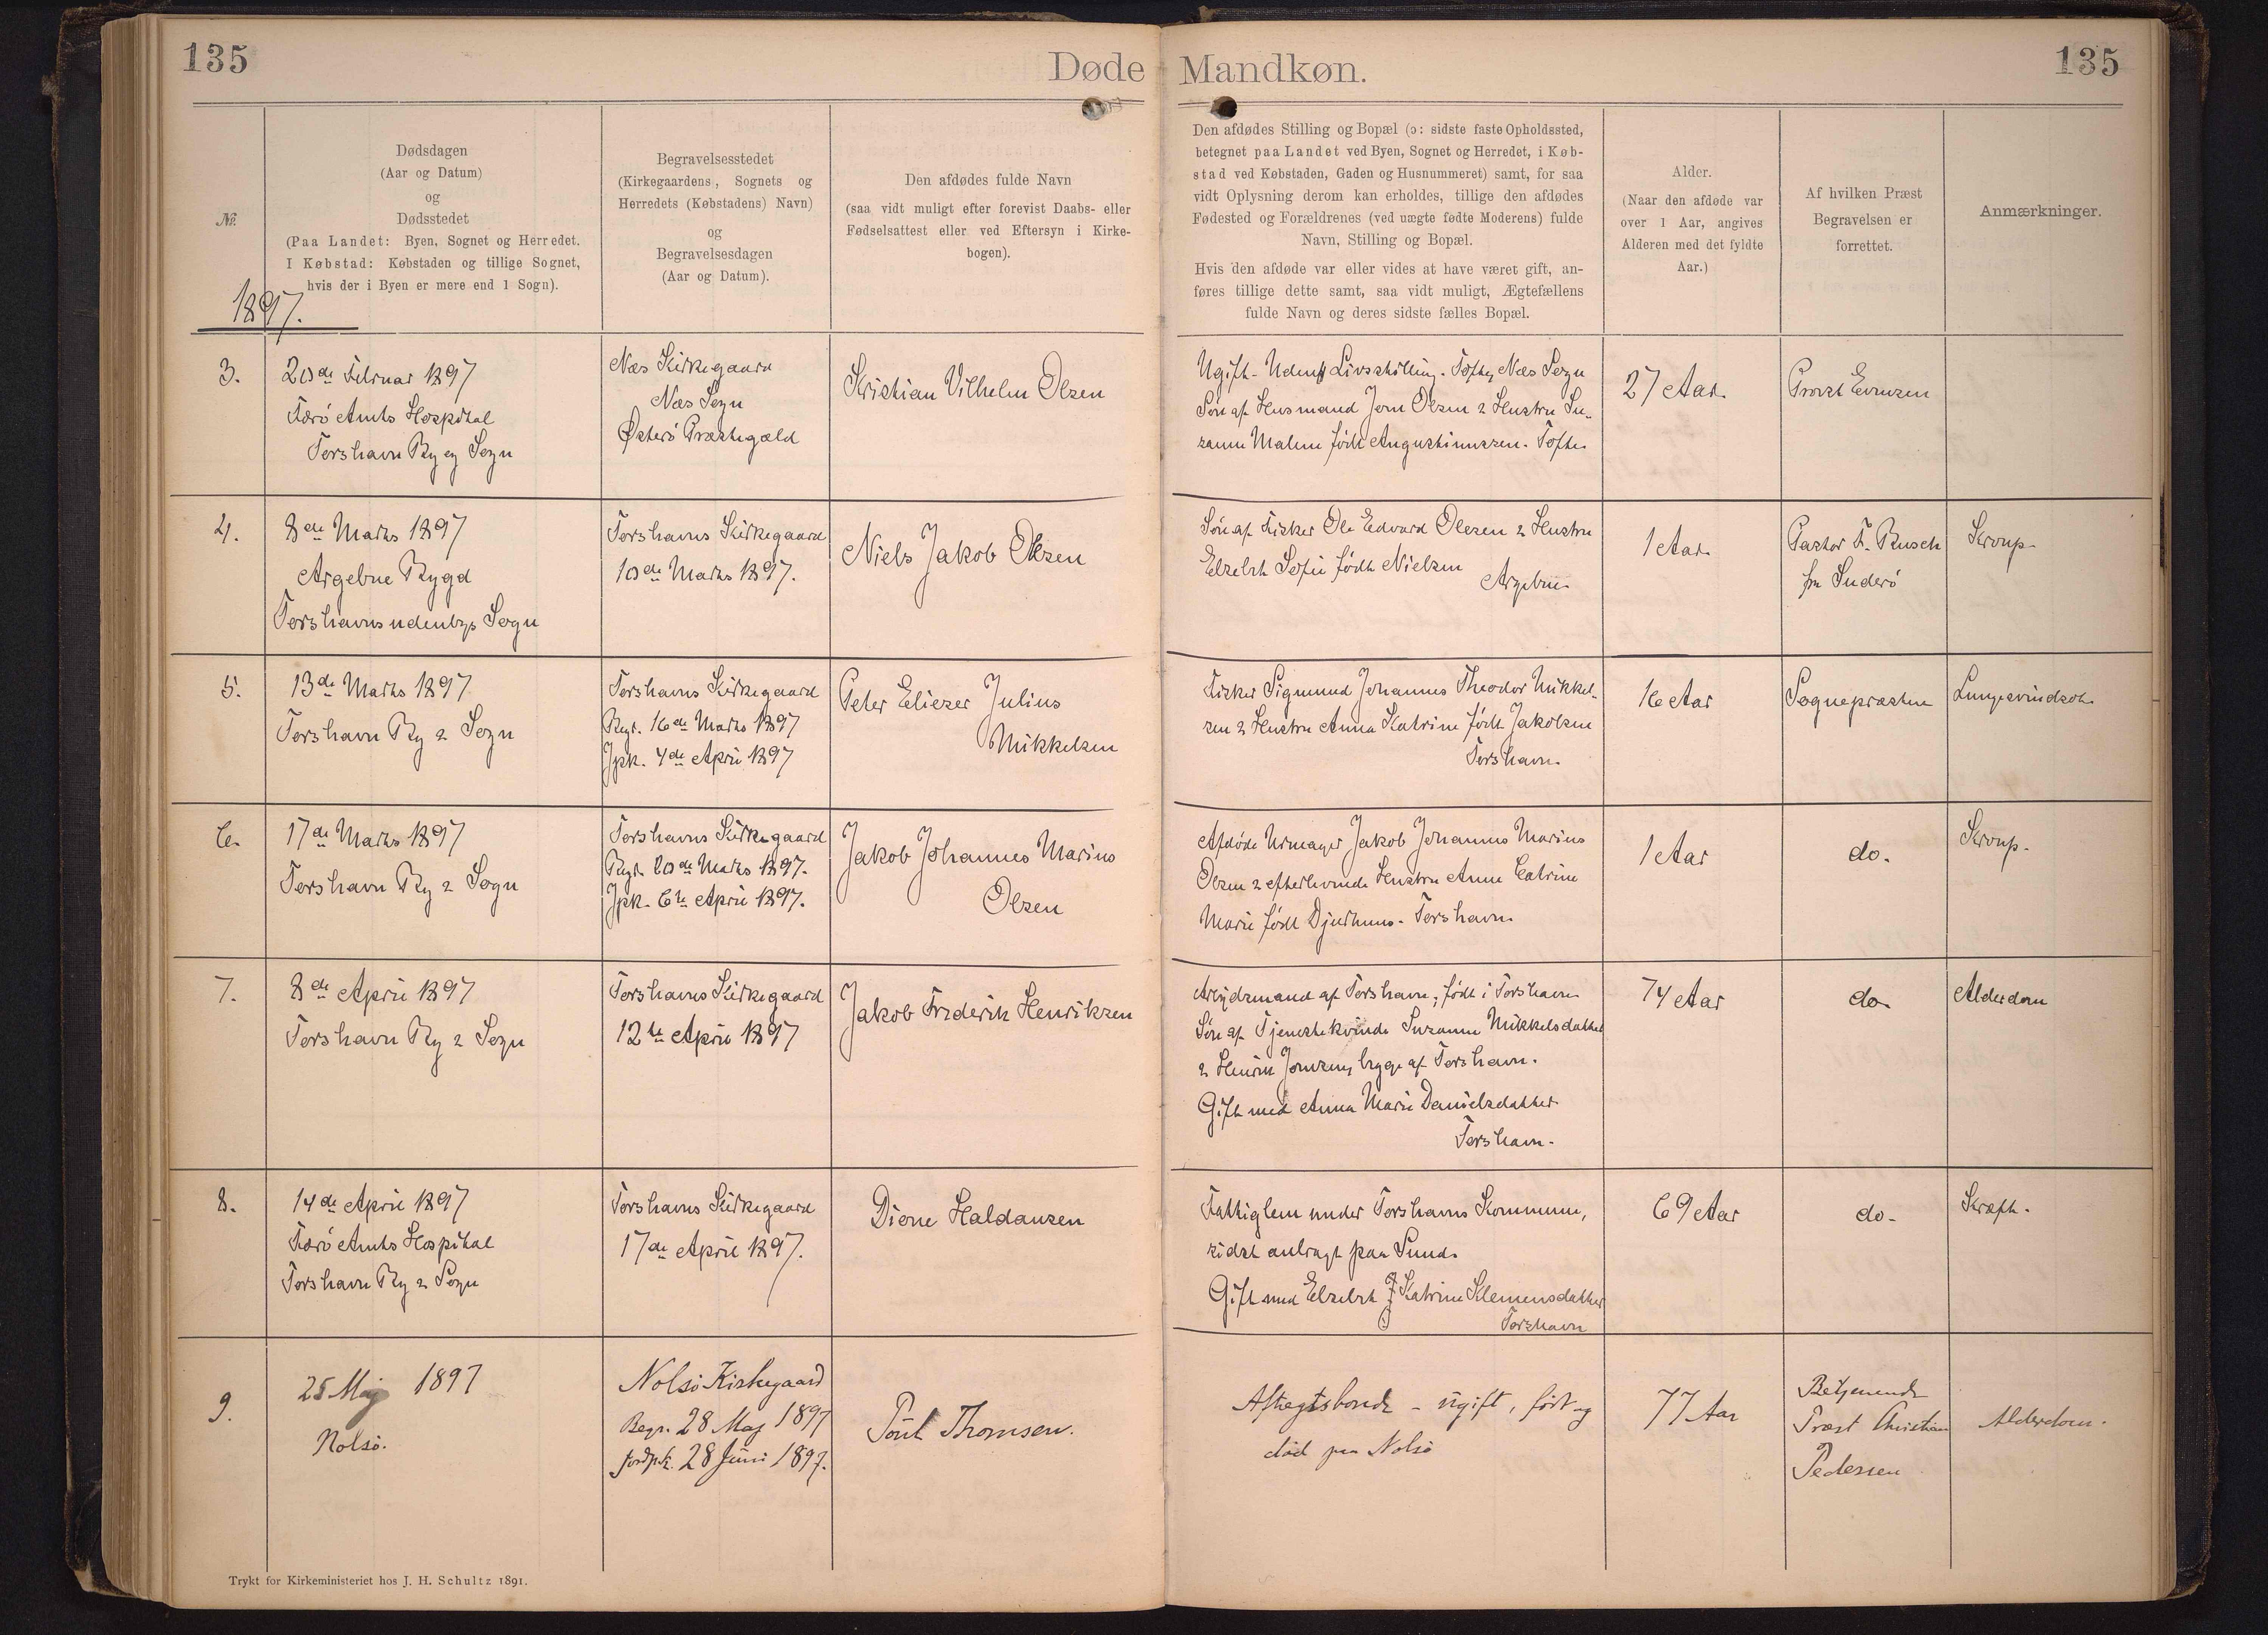 135
Døde Mandkøn.
135
№.
Dødsdagen
(Aar og Datum)
og
Dødsstedet
(Paa Landet: Byen, Sognet og Herredet.
I Købstad: Købstaden og tillige Sognet,
hvis der i Byen er mere end 1 Sogn).
Begravelsesstedet
(Kirkegaardens, Sognets og
Herredets (Købstadens) Navn)
og
Begravelsesdagen
(Aar og Datum).
Den afdødes fulde Navn
(saa vidt muligt efter forevist Daabs- eller
Fødselsattest eller ved Eftersyn i Kirke-
bogen).
Den afdødes Stilling og Bopæl (ɔ: sidste faste Opholdssted,
betegnet paa Landet ved Byen, Sognet og Herredet, i Køb-
stad ved Købstaden, Gaden og Husnummeret) samt, for saa
vidt Oplysning derom kan erholdes, tillige den afdødes
Fødested og Forældrenes (ved uægte fødte Moderens) fulde
Navn, Stilling og Bopæl.
Hvis den afdøde var eller vides at have været gift, an-
føres tillige dette samt, saa vidt muligt, Ægtefællens
fulde Navn og deres sidste fælles Bopæl.
Alder.
(Naar den afdøde var
over 1 Aar, angives
Alderen med det fyldte
Aar.)
Af hvilken Præst
Begravelsen er
forrettet.
Anmærkninger.
1897.
3.
20de Februar 1897
Færö Amts Hospital
Torshavn By og Sogn
Næs Kirkegaard
Næs Sogn
Østerö Præstegæld
Kristian Vilhelm Olsen
Ugift - Uden Livsstilling. Tofte, Næs Sogn
Søn af Husmand Jon Olsen & Hustru Su-
sanne Malene født Augustinussen. Tofte.
27 Aar.
Provst Evensen
4.
8de Marts 1897
Argebne Bygd
Torshavns udenbys Sogn
Torshavns Kirkegaard
10de Marts 1897.
Niels Jakob Olsen
Søn af Fisker Ole Edvard Olesen & Hustru
Elsebet Sofie født Nielsen
Argebne
1 Aar
Pastor F. Rusch
fra Suderö
Kroup.
5.
13de Marts 1897
Torshavn By & Sogn
Torshavns Kirkegaard
Begr. 16de Marts 1897
Jpk. 4de April 1897
Peter Eliezer Julius
Mikkelsen
Fisker Sigmund Johannes Theodor Mikkel-
sen & Hustru Anna Katrine født Jakobsen
Torshavn.
16 Aar
Sognepræsten
Lungesvindsot.
6.
17de Marts 1897
Torshavn By & Sogn
Torshavns Kirkegaard
Begr. 20de Marts 1897.
Jpk. 6te April 1897.
Jakob Johannes Marius
Olsen
Afdøde Urmager Jakob Johannes Marius
Olsen & efterlevende Hustru Anne Catrine
Marie født Djurhuus. Torshavn.
1 Aar
do.
Kroup.
7.
8de April 1897
Torshavn By & Sogn
Torshavns Kirkegaard
12te April 1897
Jakob Frederik Henriksen
Arbejdsmand af Torshavn; født i Torshavn
Søn af Tjenestekvinde Susanne Mikkelsdatter
& Henrik Joensen, begge af Torshavn.
Gift med Anna Marie Danielsdatter
Torshavn.
74 Aar
do
Alderdom
8.
14de April 1897
Færö Amts Hospital
Torshavn By & Sogn
Torshavns Kirkegaard
17de April 1897.
Dione Haldansen
Fattiglem under Torshavns Kommune,
sidst anbragt paa Sund.
Gift med Elsebet Katrine Klemensdatter
Torshavn
69 Aar
do.
Kræft.
9.
25 Maj 1897
Nolsö.
Nolsö Kirkegaard
Begr. 28 Maj 1897
Jordpk. 28 Juni 1897.
Poul Thomsen.
Aftægtsbonde - ugift, født og
død paa Nolsö
77 Aar
Betjenende
Præst Christian
Pedersen
Alderdom.
Trykt for Kirkeministeriet hos J. H. Schultz 1891.